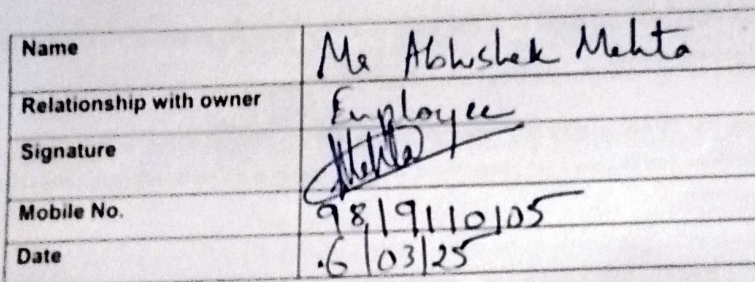 Name Mr Abhishek Mehta
Relationship with owner Employee
Signature Mehta
Mobile No. 9819110105
Date 6/03/25